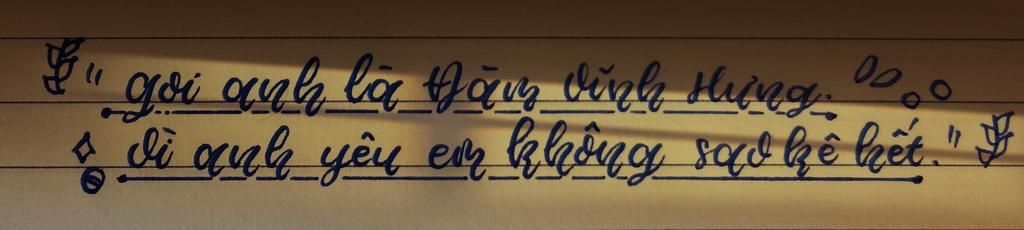 " gọi anh là Đàm Vĩnh Hưng.
vì anh yêu em không sao kể hết. "